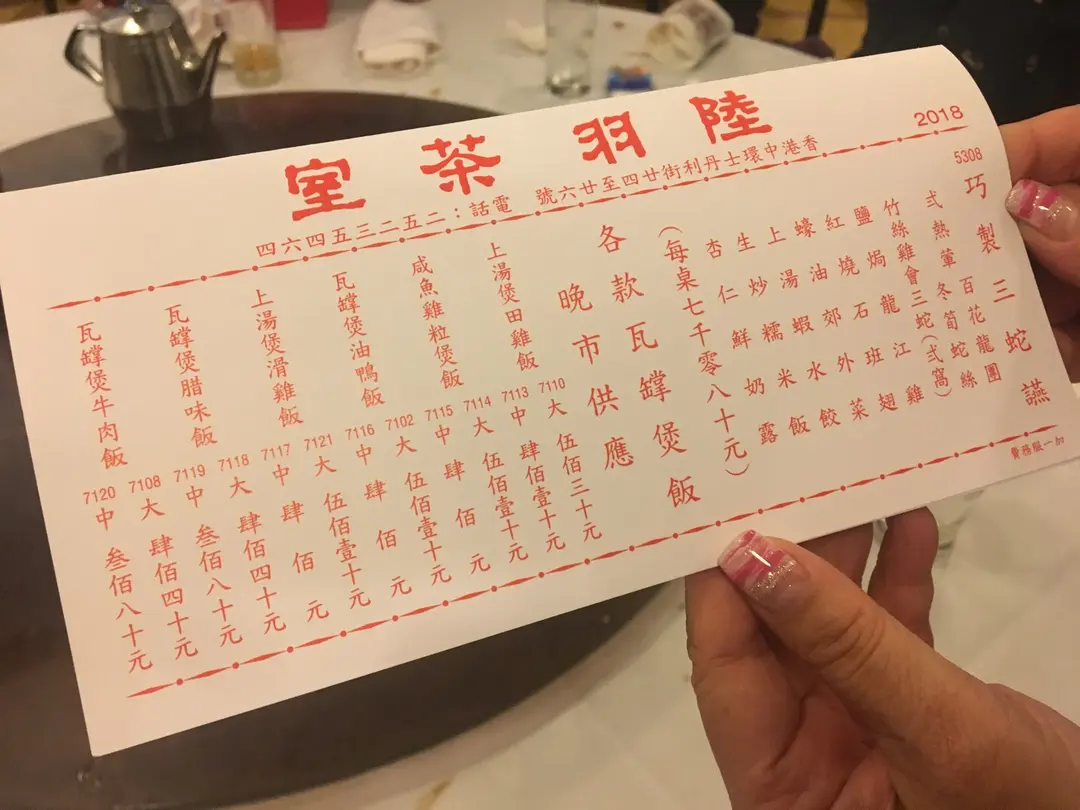 陸羽茶室
2018
香港中環士丹利街廿四至廿六號 電話：二五二三五四六四
5308
巧製三蛇讌
弍熱葷 百花龍團
冬筍蛇絲
竹絲雞會三蛇(弍窩)
鹽焗龍江雞
紅燒石班翅
蠔油郊外菜
上湯蝦水餃
生炒糯米飯
杏仁鮮奶露
(每桌七千零八十元)
加一服務費
各款瓦罉煲飯
晚市供應
上湯煲田雞飯
7110 大 伍佰三十元
7113 中 肆佰壹十元
咸魚雞粒煲飯
7114 大 伍佰壹十元
7115 中 肆佰元
瓦罉煲油鴨飯
7102 大 伍佰壹十元
7116 中 肆佰元
上湯煲滑雞飯
7121 大 伍佰壹十元
7117 中 肆佰元
瓦罉煲腊味飯
7118 大 肆佰四十元
7119 中 叁佰八十元
瓦罉煲牛肉飯
7108 大 肆佰四十元
7120 中 叁佰八十元